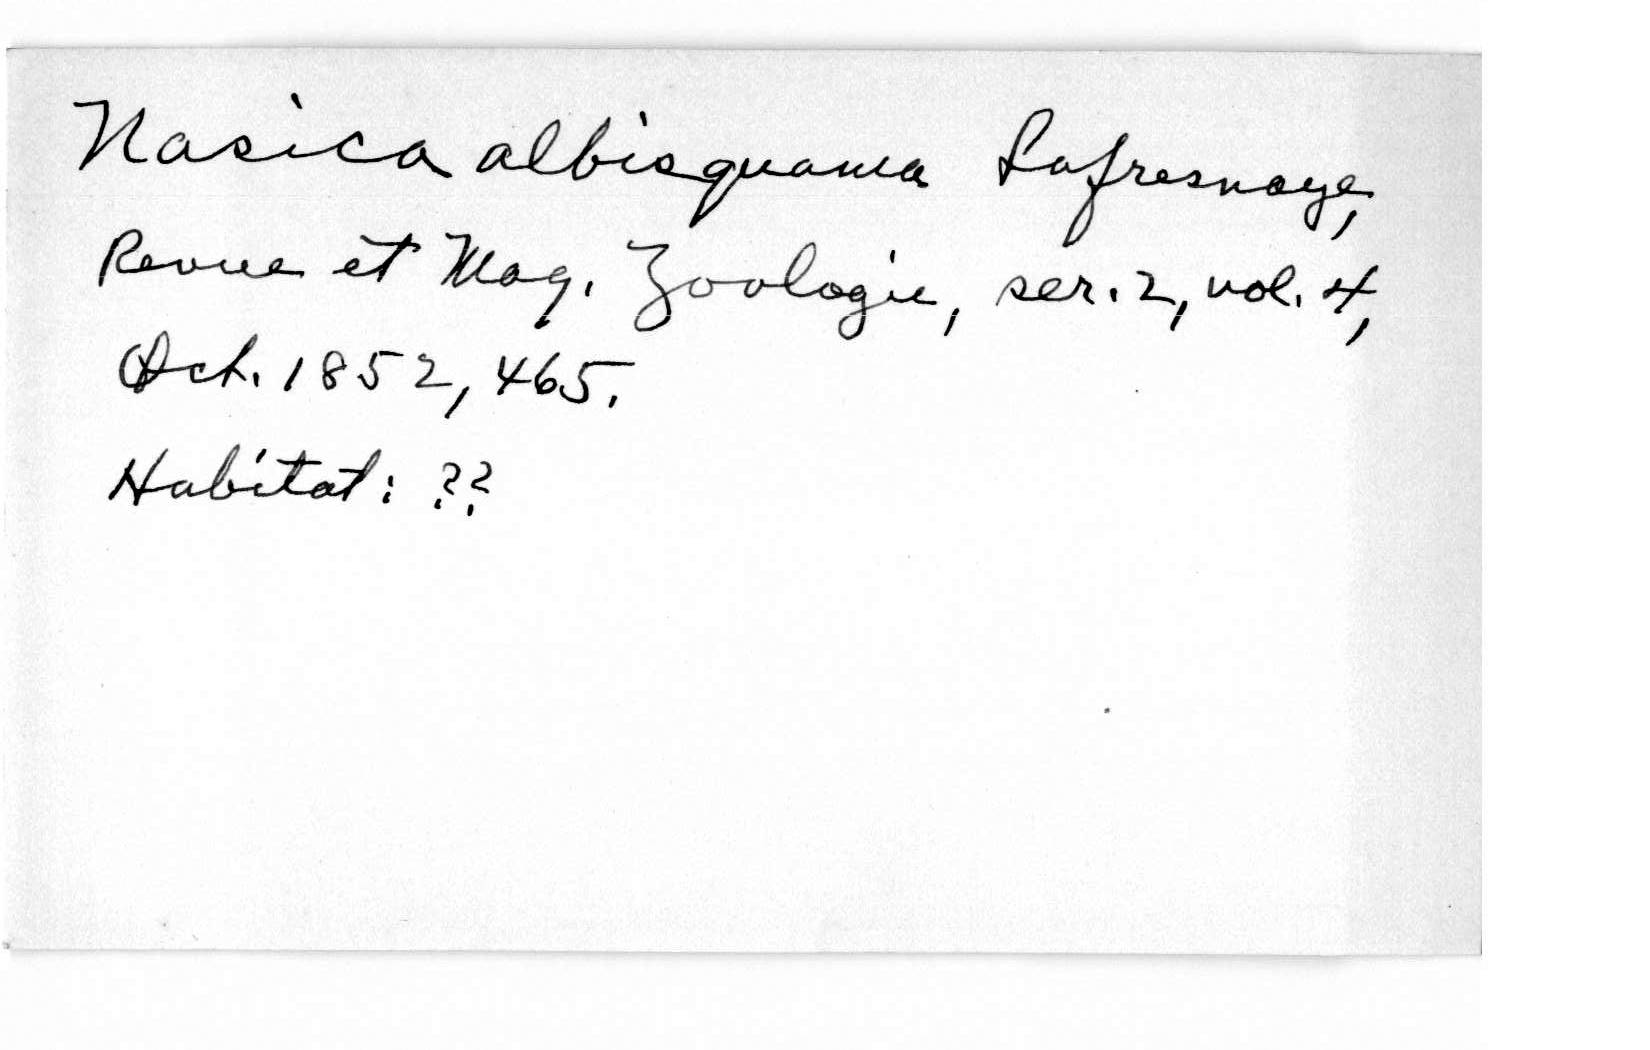 Nasica albisquama Lafresnaye,
Revue et Mag. Zoologie, ser. 2, vol. 4,
Oct. 1852, 465.
Habitat: ??